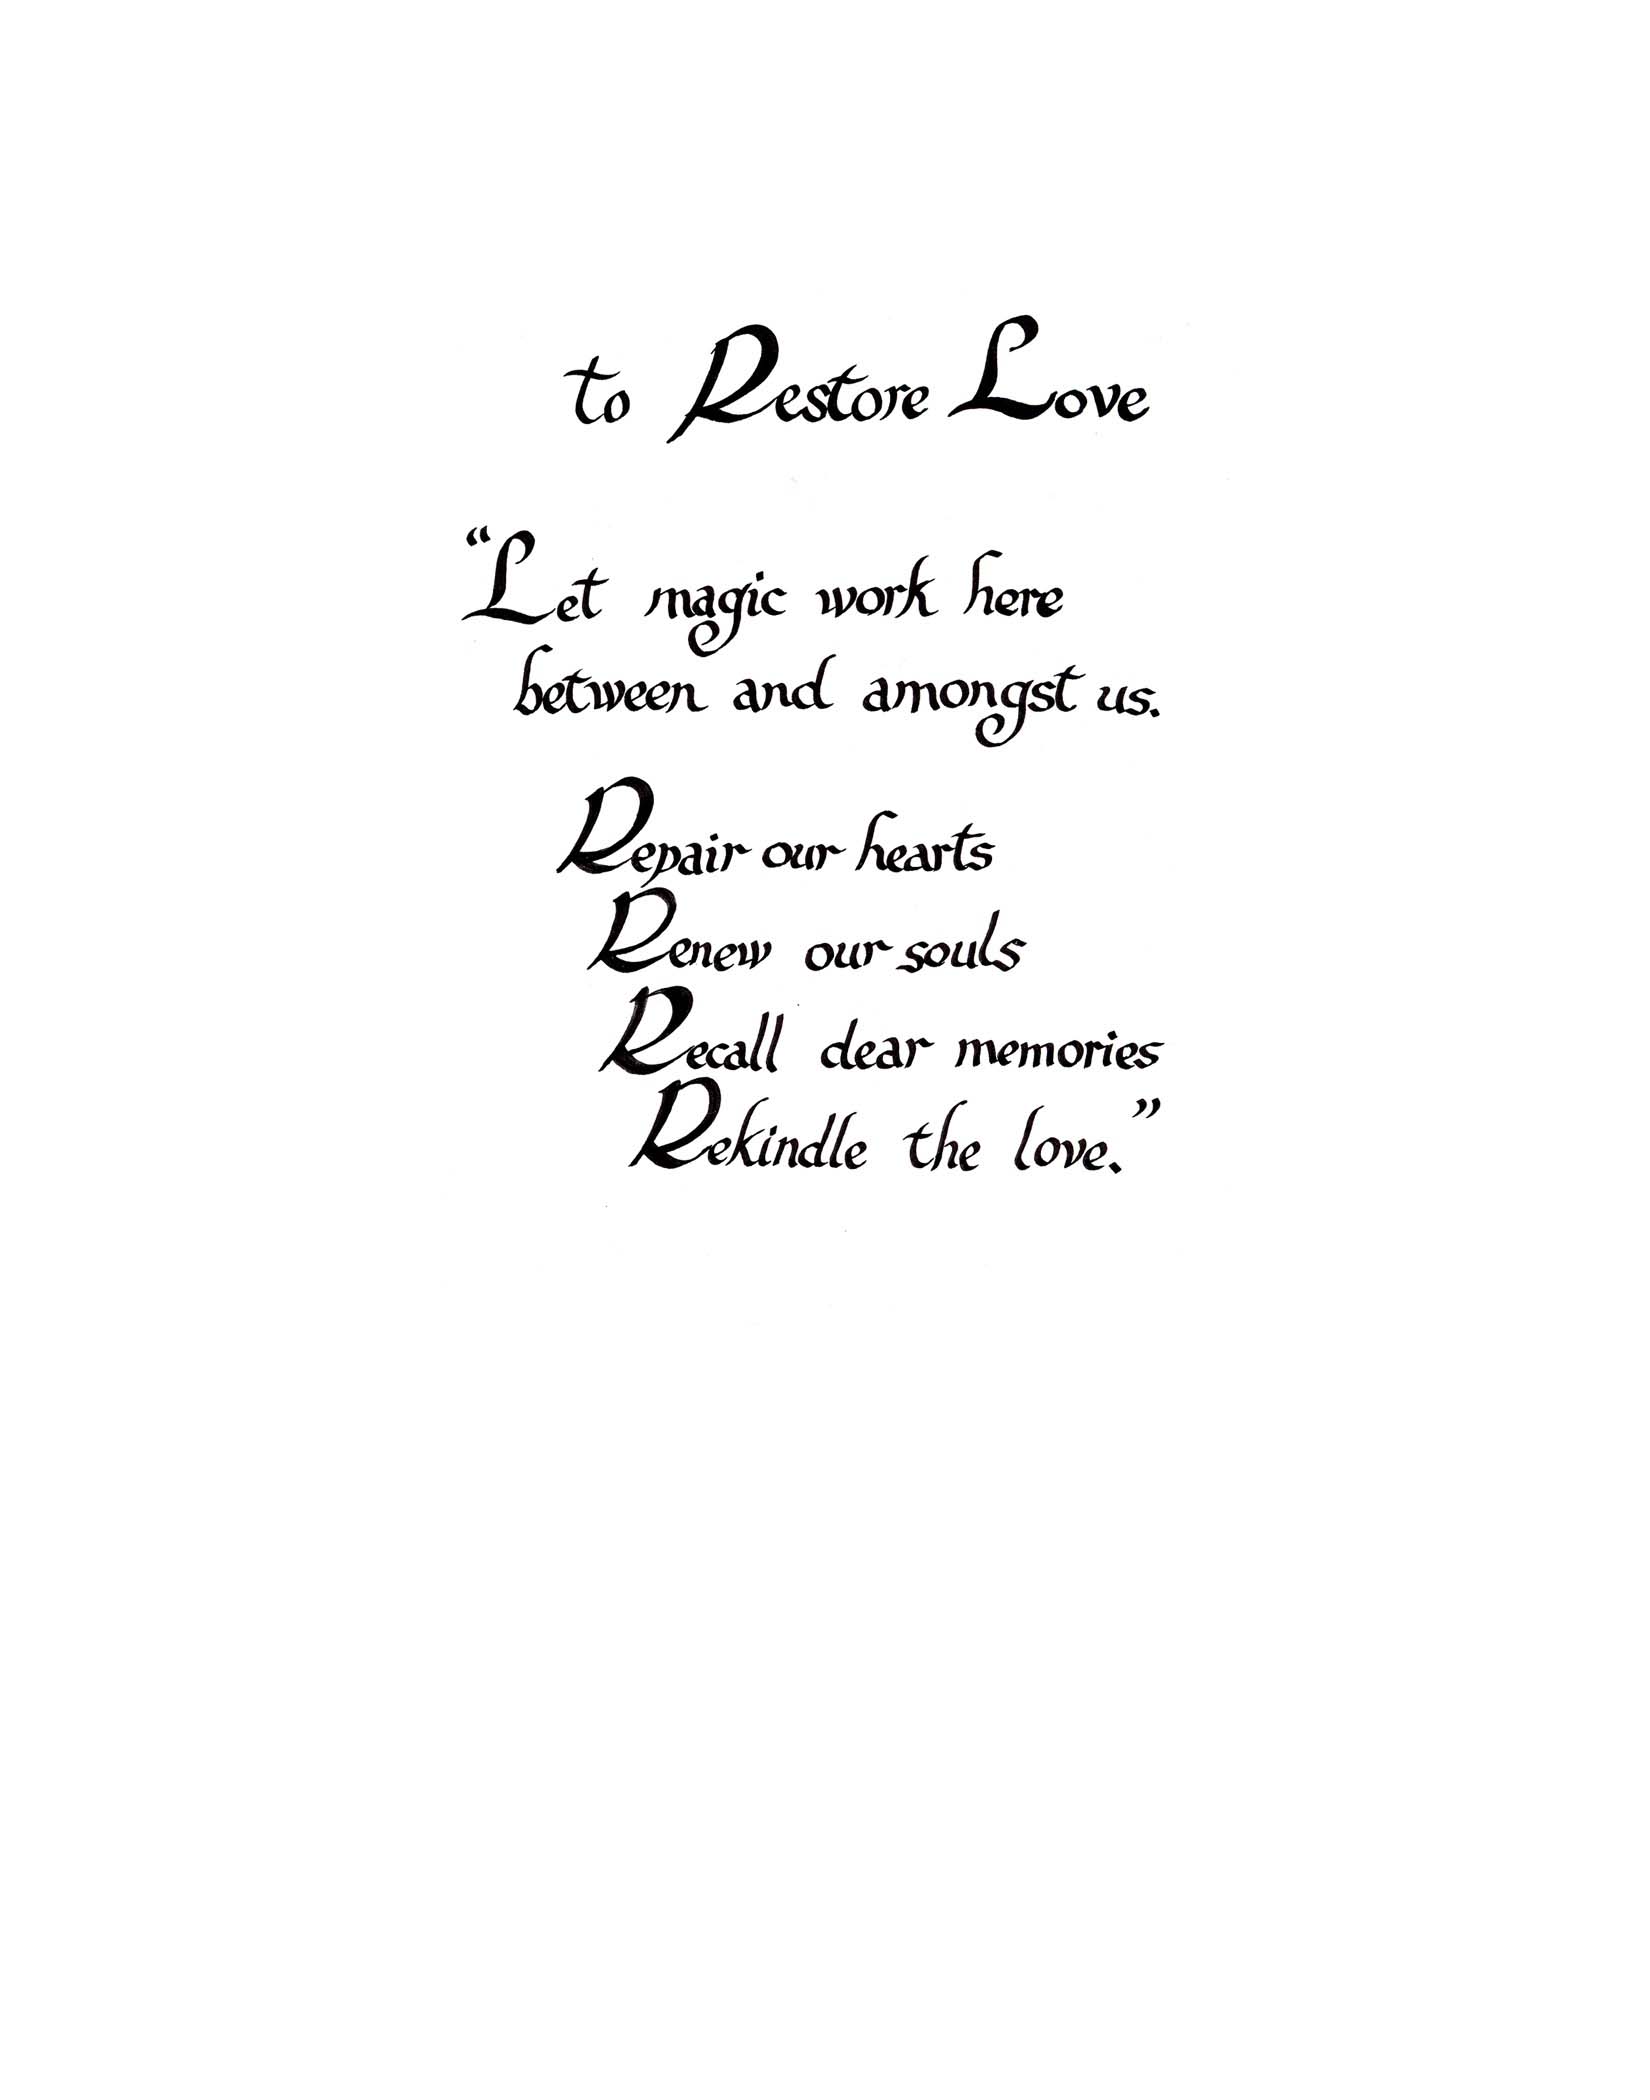 to Restore Love
“Let magic work here
between and amongst us.
Repair our hearts
Renew our souls
Recall dear memories
Rekindle the love.”